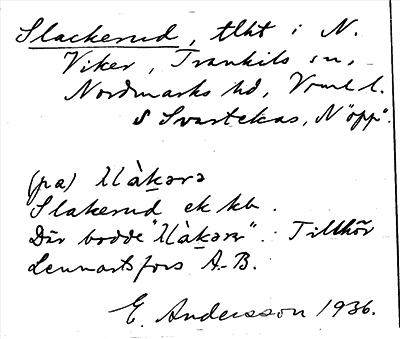 Slackerud, tlht i N.
Viker, Trankils sn,
Nordmarks hd, Vrml l.
S Svartekas, N "öpp".
(pa) llàkərə
Slakerud ek kb.
Där bodde "llàkərə". Tillhör
Lennartsfors A-B.
E. Andersson 1936.